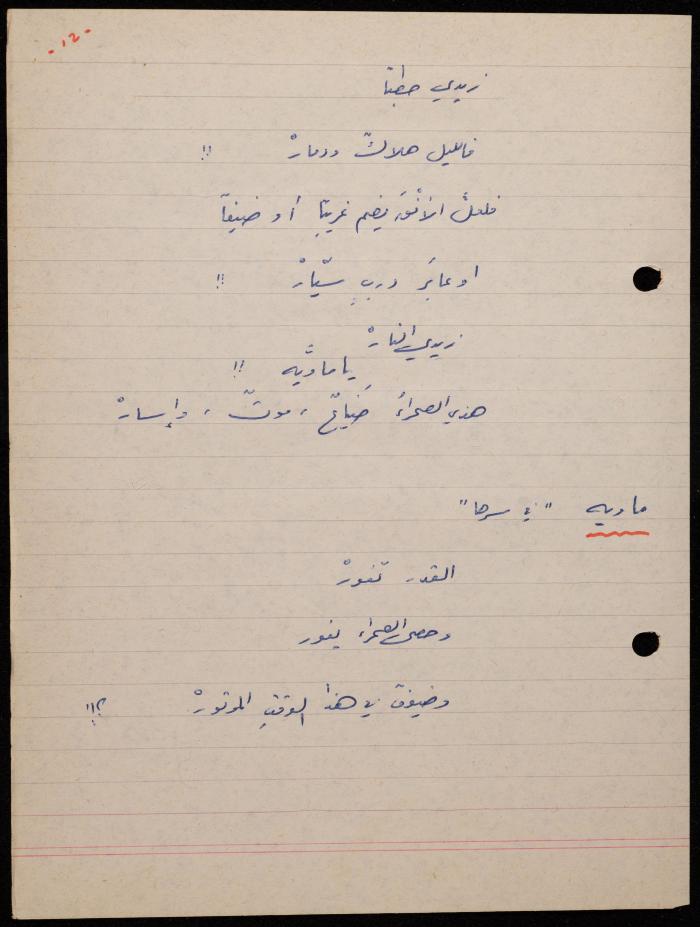 -١٢-
زيدي حطبًا
فالليل هلاكٌ ودمارْ !!
فلعلَّ الأفقَ يضم غريبًا أو ضيفًا
او عابرَ دربٍ سيّارْ !!
زيدي النارْ
يا ماويَّه !!
هذي الصحراءُ ضَياعٌ ، موتٌ ، وإسارْ
ماويه " في سرها "
القدر تفورْ
وحصى الصحراء يغور
وضيوف في هذا الوقتِ الموتورْ ؟!!